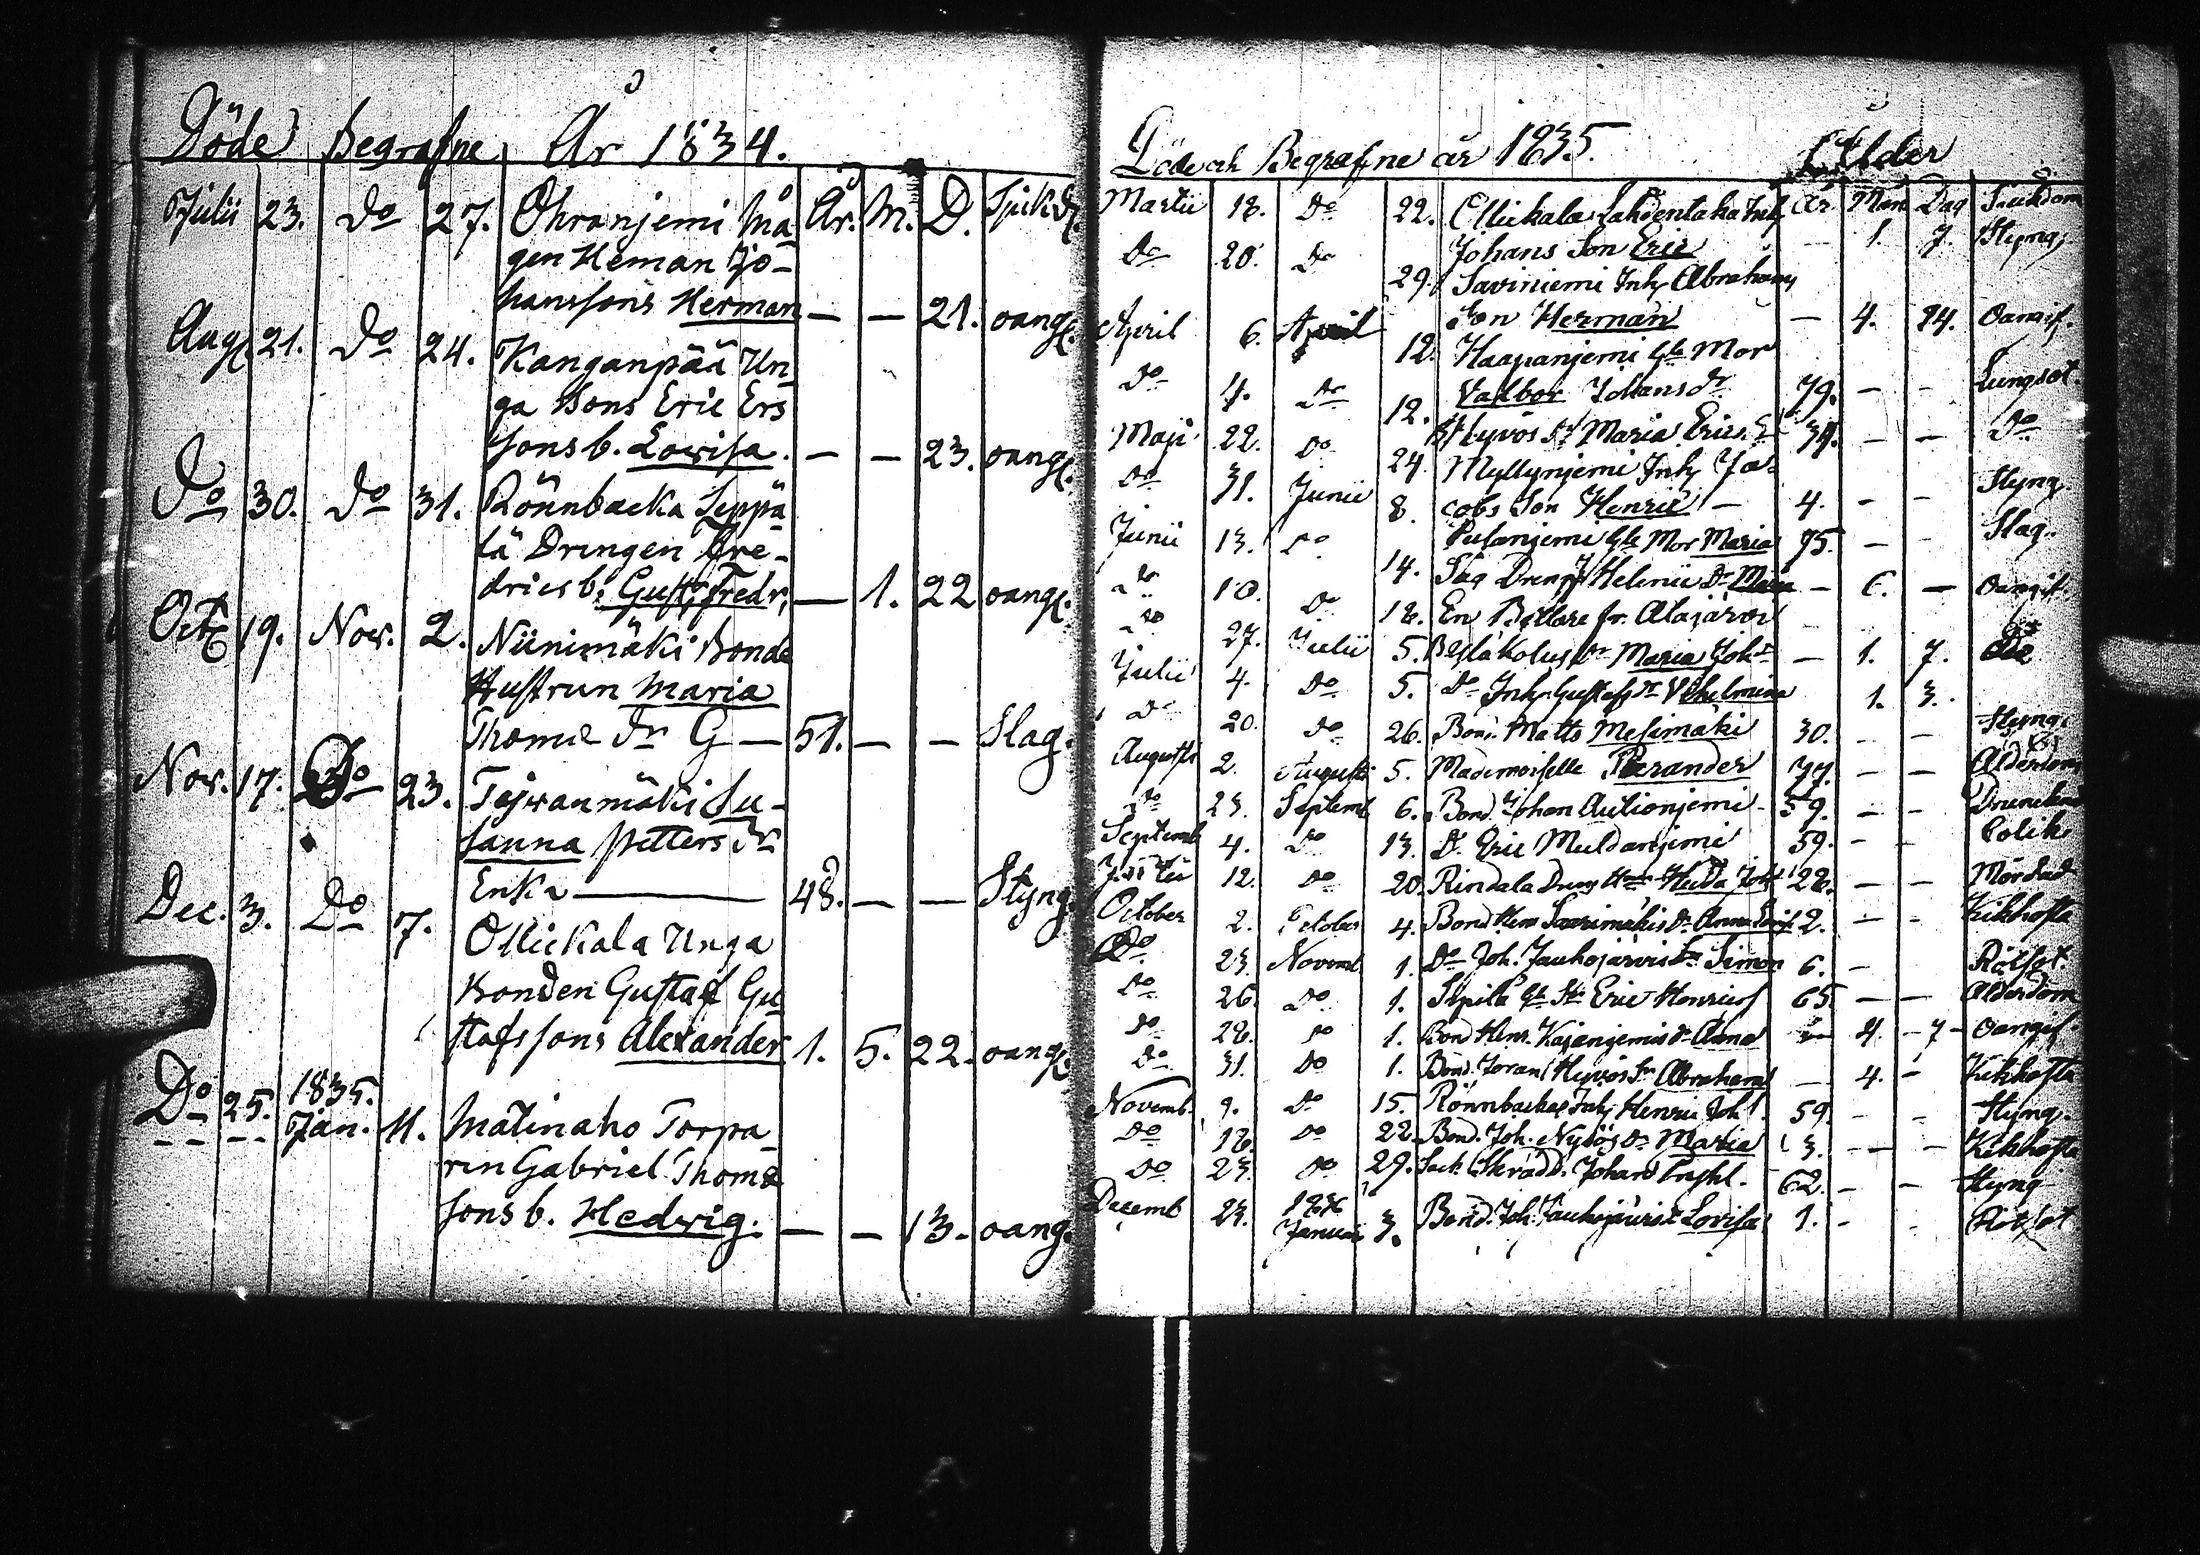 Döde Begrafne År 1834.
Julii 23. Do 27. Ohranjemi Må År. M. D. Sjukd.
gen Heman Jo-
hanssons Herman — — 21. oang.
Aug. 21. Do 24. Kanganpää Un
ga Bons Eric Ers
sons b. Lovisa. — — 23. oang.
Do 30. Do 31. Rönnbacka Seppä
lä Drengen Fre-
drics b. Gust. Fredr. — 1. 22 oang.
Oct. 19. Nov. 2. Niinimäki Bonde
Hustrun Maria
Thomæ dr G — 51. — — Slag.
Nov. 17. Do 23. Tejvanmäki Su-
sanna Petters dr
Enka — 48. — — Styng.
Dec. 3. Do 7. Ollickala Unga
Bonden Gustaf Gu
stafssons Alexander 1. 5. 22. oang.
1835.
Do 25. Jan. 11. Matinaho Torpa
rin Gabriel Thomæ
sons b. Hedvig. — — 13. oang.
Döde och Begrafne år 1835. Ålder
Martii 18. Do 22. Ollickala Lahdentaka Inh. År. Mån Dag Siukdom
Johans Son Eric — 1. 7. Styng.
Do 20. Do 29. Saviniemi Inh. Abrahams
Son Herman — 4. 14. Oangif.
April 6. April 12. Haapanjemi Gla Mor
Valbor Johans dr 79. — — Lungsot.
Do 7. Do 12. Hyvös Maria Erics dr 34. — — Do
Maji 22. Do 24. Myllynjemi Inh. Ja-
cobs Son Henric — 4. — — Styng.
Do 31. Junii 8. Gla Mor Maria 75. — — Slag.
Junii 13. Do 14. Såg Dreng Helenii Dr Maria — 6. — Oangif.
Do 10. Do 18. En Betlare fr. Alajärvi
Do 27. Julii 5. Maria Joh. — 1. 7. Do
Julii 4. Do 5. Do Inh. Gustafs dr Vilhelmina 1. 3.
Do 20. Do 26. Bond. Matts Mesimäki 30. — — Styng.
Augusti 2. Augusti 5. Mademoiselle 77. — — Ålderdom
Do 23. Septemb 6. Bond. Johan Autionjemi 59. — —
Septemb 4. Do 13. Do Eric Muldanjemi 59. — — Colik
12. Do 20. Rindala Dreng Heda Joh. 28. — — Mördad
October 2. October 4. Bond Hen. Saarimäkis dr Anna 2. — — Kikhosta
Do 23. Novemb 1. Do Joh. Jauhojärvis Sn Simon 6. — Rötsot.
Do 26. Do 1. Eric Henrics 65 — — Ålderdom
Do 28. Do 1. Bond Hen. Kajanjemis dr Anna — 4. 7 Oangif.
Do 31. Do 1. Bond. Hyvös Sn Abraham — 4. — Kikhosta
Novemb. 9. Do 15. Rönnbacka Inh. Henric Joh. 59 — — Styng.
Do 18. Do 22. Bond. Joh. Nylös dr Maria 3. — — Kikhosta
Do 23. Do 29. Sock. Skrädd. Johan 62. — — Styng
Decemb 23. 1836 Januar 3. Bond. Joh. Jauhojärvis dr Lovisa 1. — — Rötsot